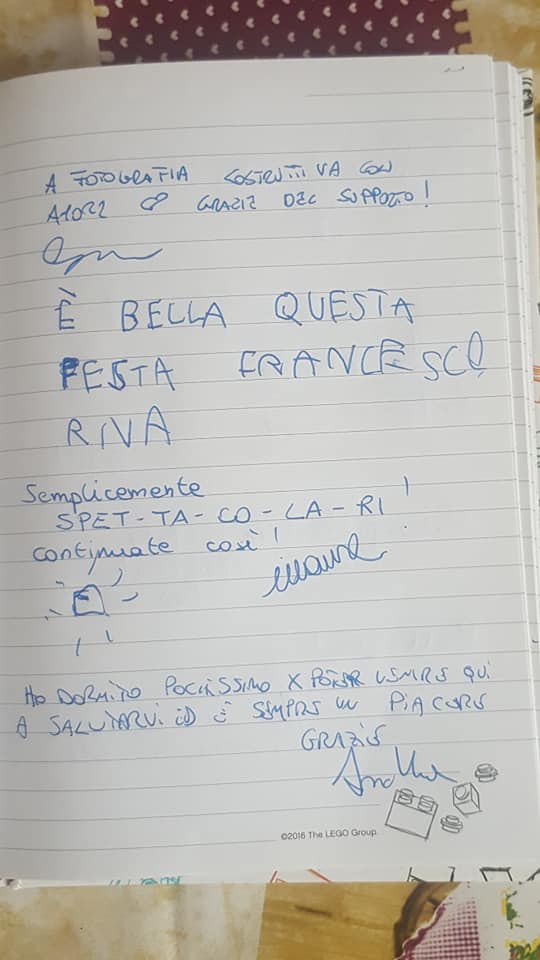 A FOTOGRAFIA COSTRUTTIVA CON
GRAZIE DEL SUPPORTO!
È BELLA QUESTA
FESTA FRANCESCO
RIVA
Semplicemente
SPET-TA-CO-LA-RI!
continuate così!
HO DORMITO POCHISSIMO X POTER VENIRE QUI
A SALUTARVI ED È SEMPRE UN PIACERE
GRAZIE
©2016 The LEGO Group.